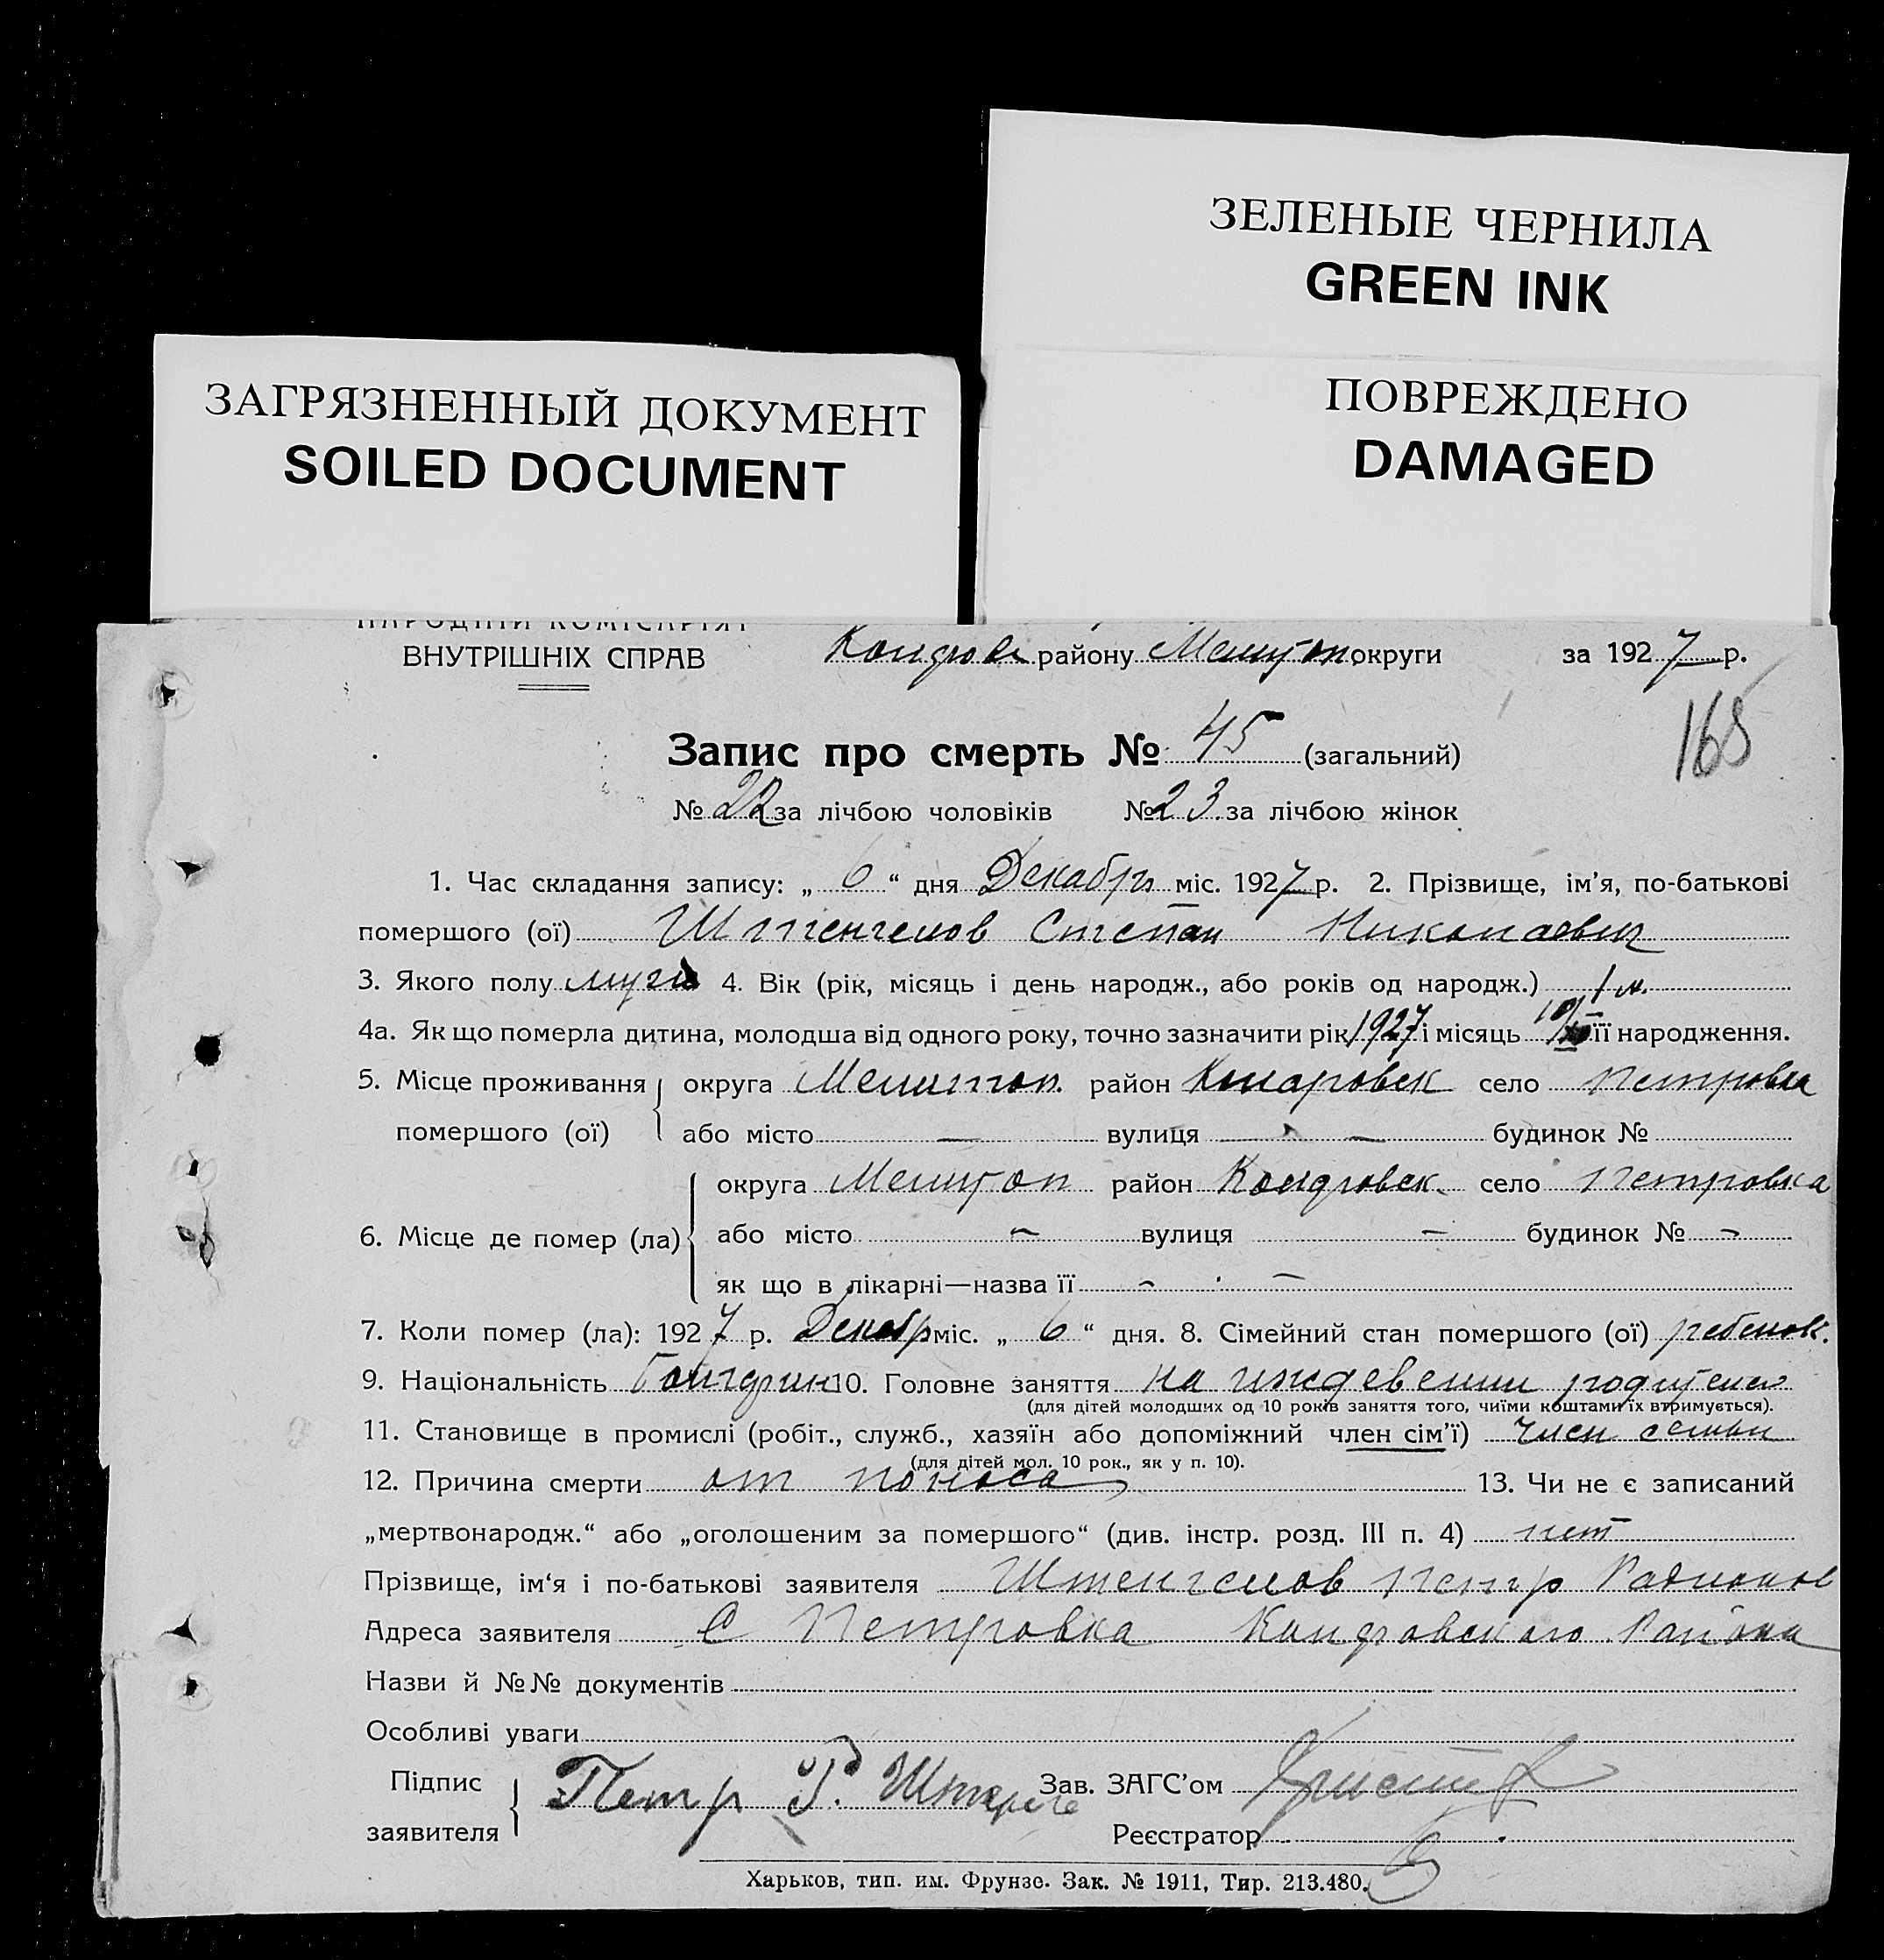 ЗЕЛЕНЫЕ ЧЕРНИЛА
GREEN INK
ЗАГРЯЗНЕННЫЙ ДОКУМЕНТ
SOILED DOCUMENT
ПОВРЕЖДЕНО
DAMAGED
НАРОДНІЙ КОМІСАРІЯТ
ВНУТРІШНІХ СПРАВ
району Мелитоп. округи за 1927 р.
165
Запис про смерть № 45 (загальний)
№ 22 за лічбою чоловіків № 23. за лічбою жінок
1. Час складання запису: „ 6 “ дня Декабрь міс. 1927 р. 2. Прізвище, ім’я, по-батькові
помершого (ої) Штенгелов Степан Николаевич
3. Якого полу 4. Вік (рік, місяць і день народж., або років од народж.) 1 м.
4а. Як що померла дитина, молодша від одного року, точно зазначити рік 1927 і місяць її народження.
5. Місце проживання округа Мелитоп. район село Петровка
помершого (ої) або місто — вулиця — будинок №
округа Мелитоп район Кондровск. село Петровка
6. Місце де помер (ла) або місто — вулиця — будинок № —
як що в лікарні—назва її — —
7. Коли помер (ла): 1927 р. Декабр міс. „ 6 “ дня. 8. Сімейний стан помершого (ої) ребенок.
9. Національність 10. Головне заняття на иждевении родителей
(для дітей молодших од 10 років заняття того, чиїми коштами їх втримується).
11. Становище в промислі (робіт., служб., хазяїн або допоміжний член сім’ї) член семьи
(для дітей мол. 10 рок., як у п. 10).
12. Причина смерти от поноса 13. Чи не є записаний
„мертвонародж.“ або „оголошеним за помершого“ (див. інстр. розд. III п. 4) нет
Прізвище, ім‘я і по-батькові заявителя Штенгелов Петр Радионов
Адреса заявителя С Петровка Кондровского Района
Назви й №№ документів
Особливі уваги
Підпис Петр Р. Зав. ЗАГС’ом
заявителя Реєстратор
Харьков, тип. им. Фрунзе. Зак. № 1911, Тир. 213.480.